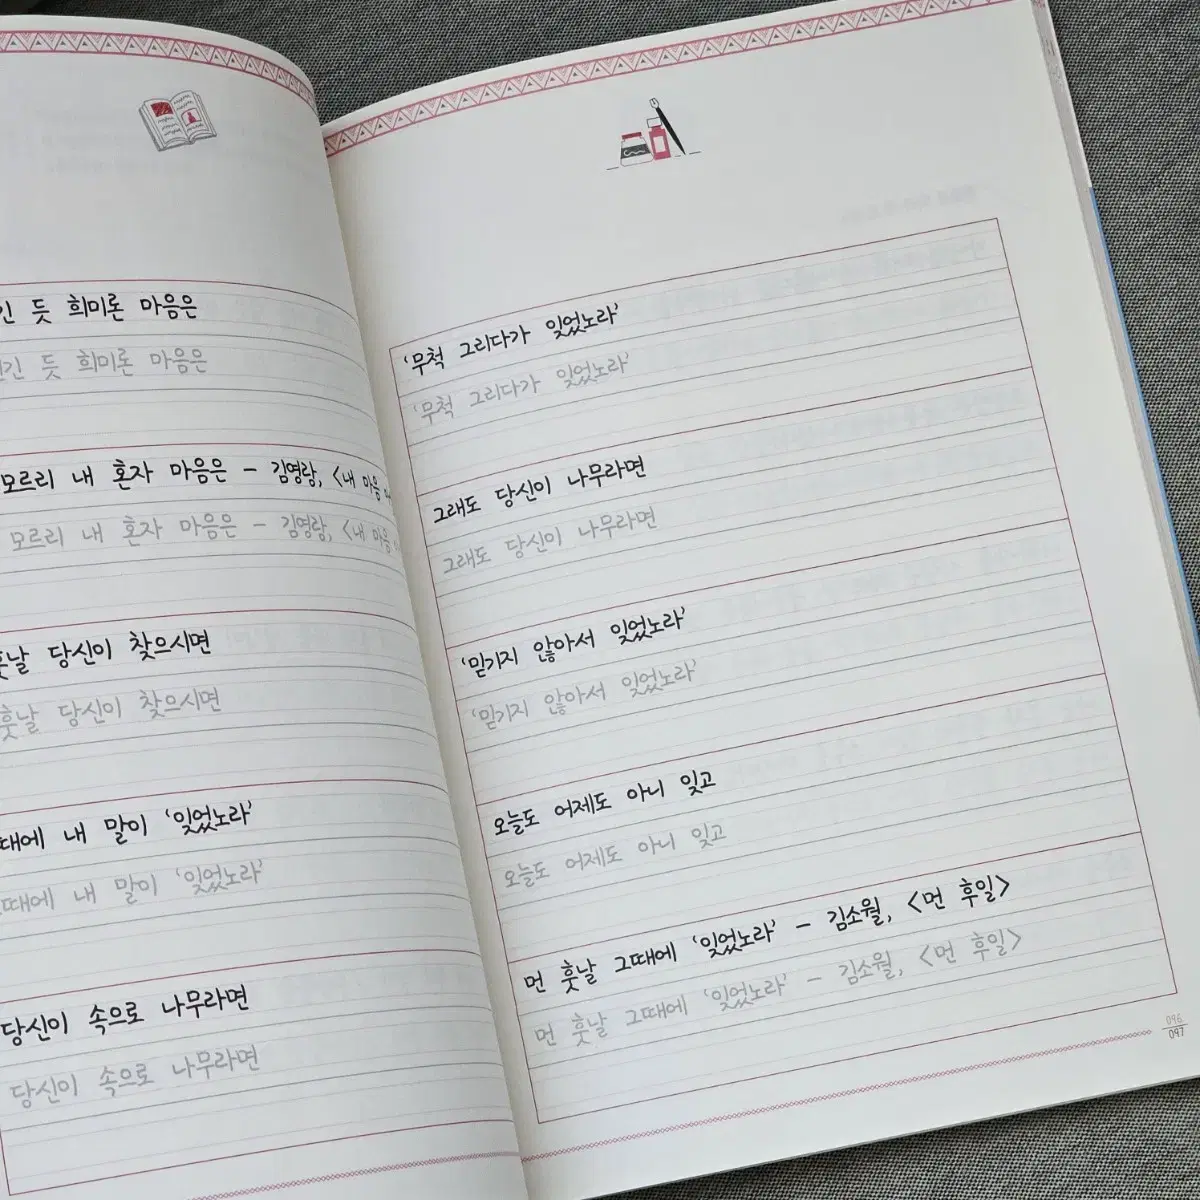 듯 희미론 마음은
듯 희미론 마음은
모르리 내 혼자 마음은 - 김영랑, <내 마음
모르리 내 혼자 마음은 - 김영랑, <내 마음
훗날 당신이 찾으시면
훗날 당신이 찾으시면
때에 내 말이 '잊었노라'
때에 내 말이 '잊었노라'
당신이 속으로 나무라면
당신이 속으로 나무라면
'무척 그리다가 잊었노라'
'무척 그리다가 잊었노라'
그래도 당신이 나무라면
그래도 당신이 나무라면
'믿기지 않아서 잊었노라'
'믿기지 않아서 잊었노라'
오늘도 어제도 아니 잊고
오늘도 어제도 아니 잊고
먼 훗날 그때에 '잊었노라' - 김소월, <먼 후일>
먼 훗날 그때에 '잊었노라' - 김소월, <먼 후일>
096
097